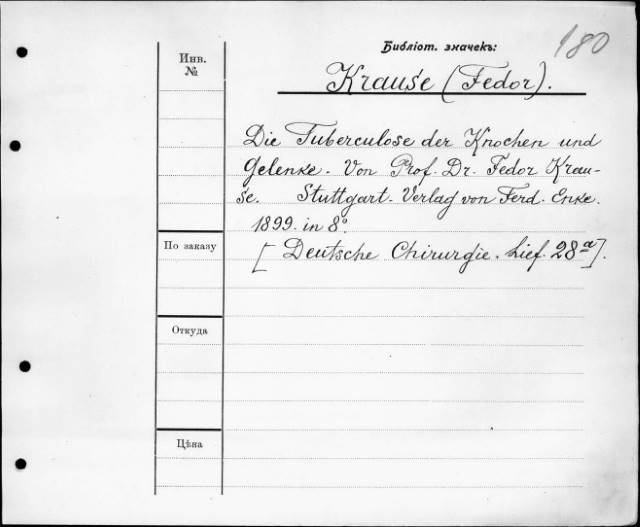 Библіот. значекъ:
180
Инв.
№
Krause (Fedor).
Die Tuberculose der Knochen und
Gelenke. Von Prof. Dr. Fedor Krau-
se. Stuttgart. Verlag von Ferd. Enke.
1899. in 8°.
По заказу
[Deutsche Chirurgie. Lief. 28a].
Откуда
Цѣна